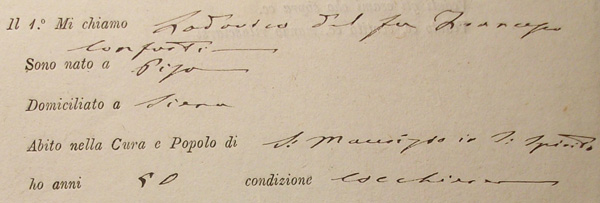 Il 1.º Mi chiamo Lodovico del fu Francesco
Conforti
Sono nato a Pisa
Domiciliato a Siena
Abito nella Cura e Popolo di S. Maurizio in S. Spirito
ho anni 50 condizione Cocchiere